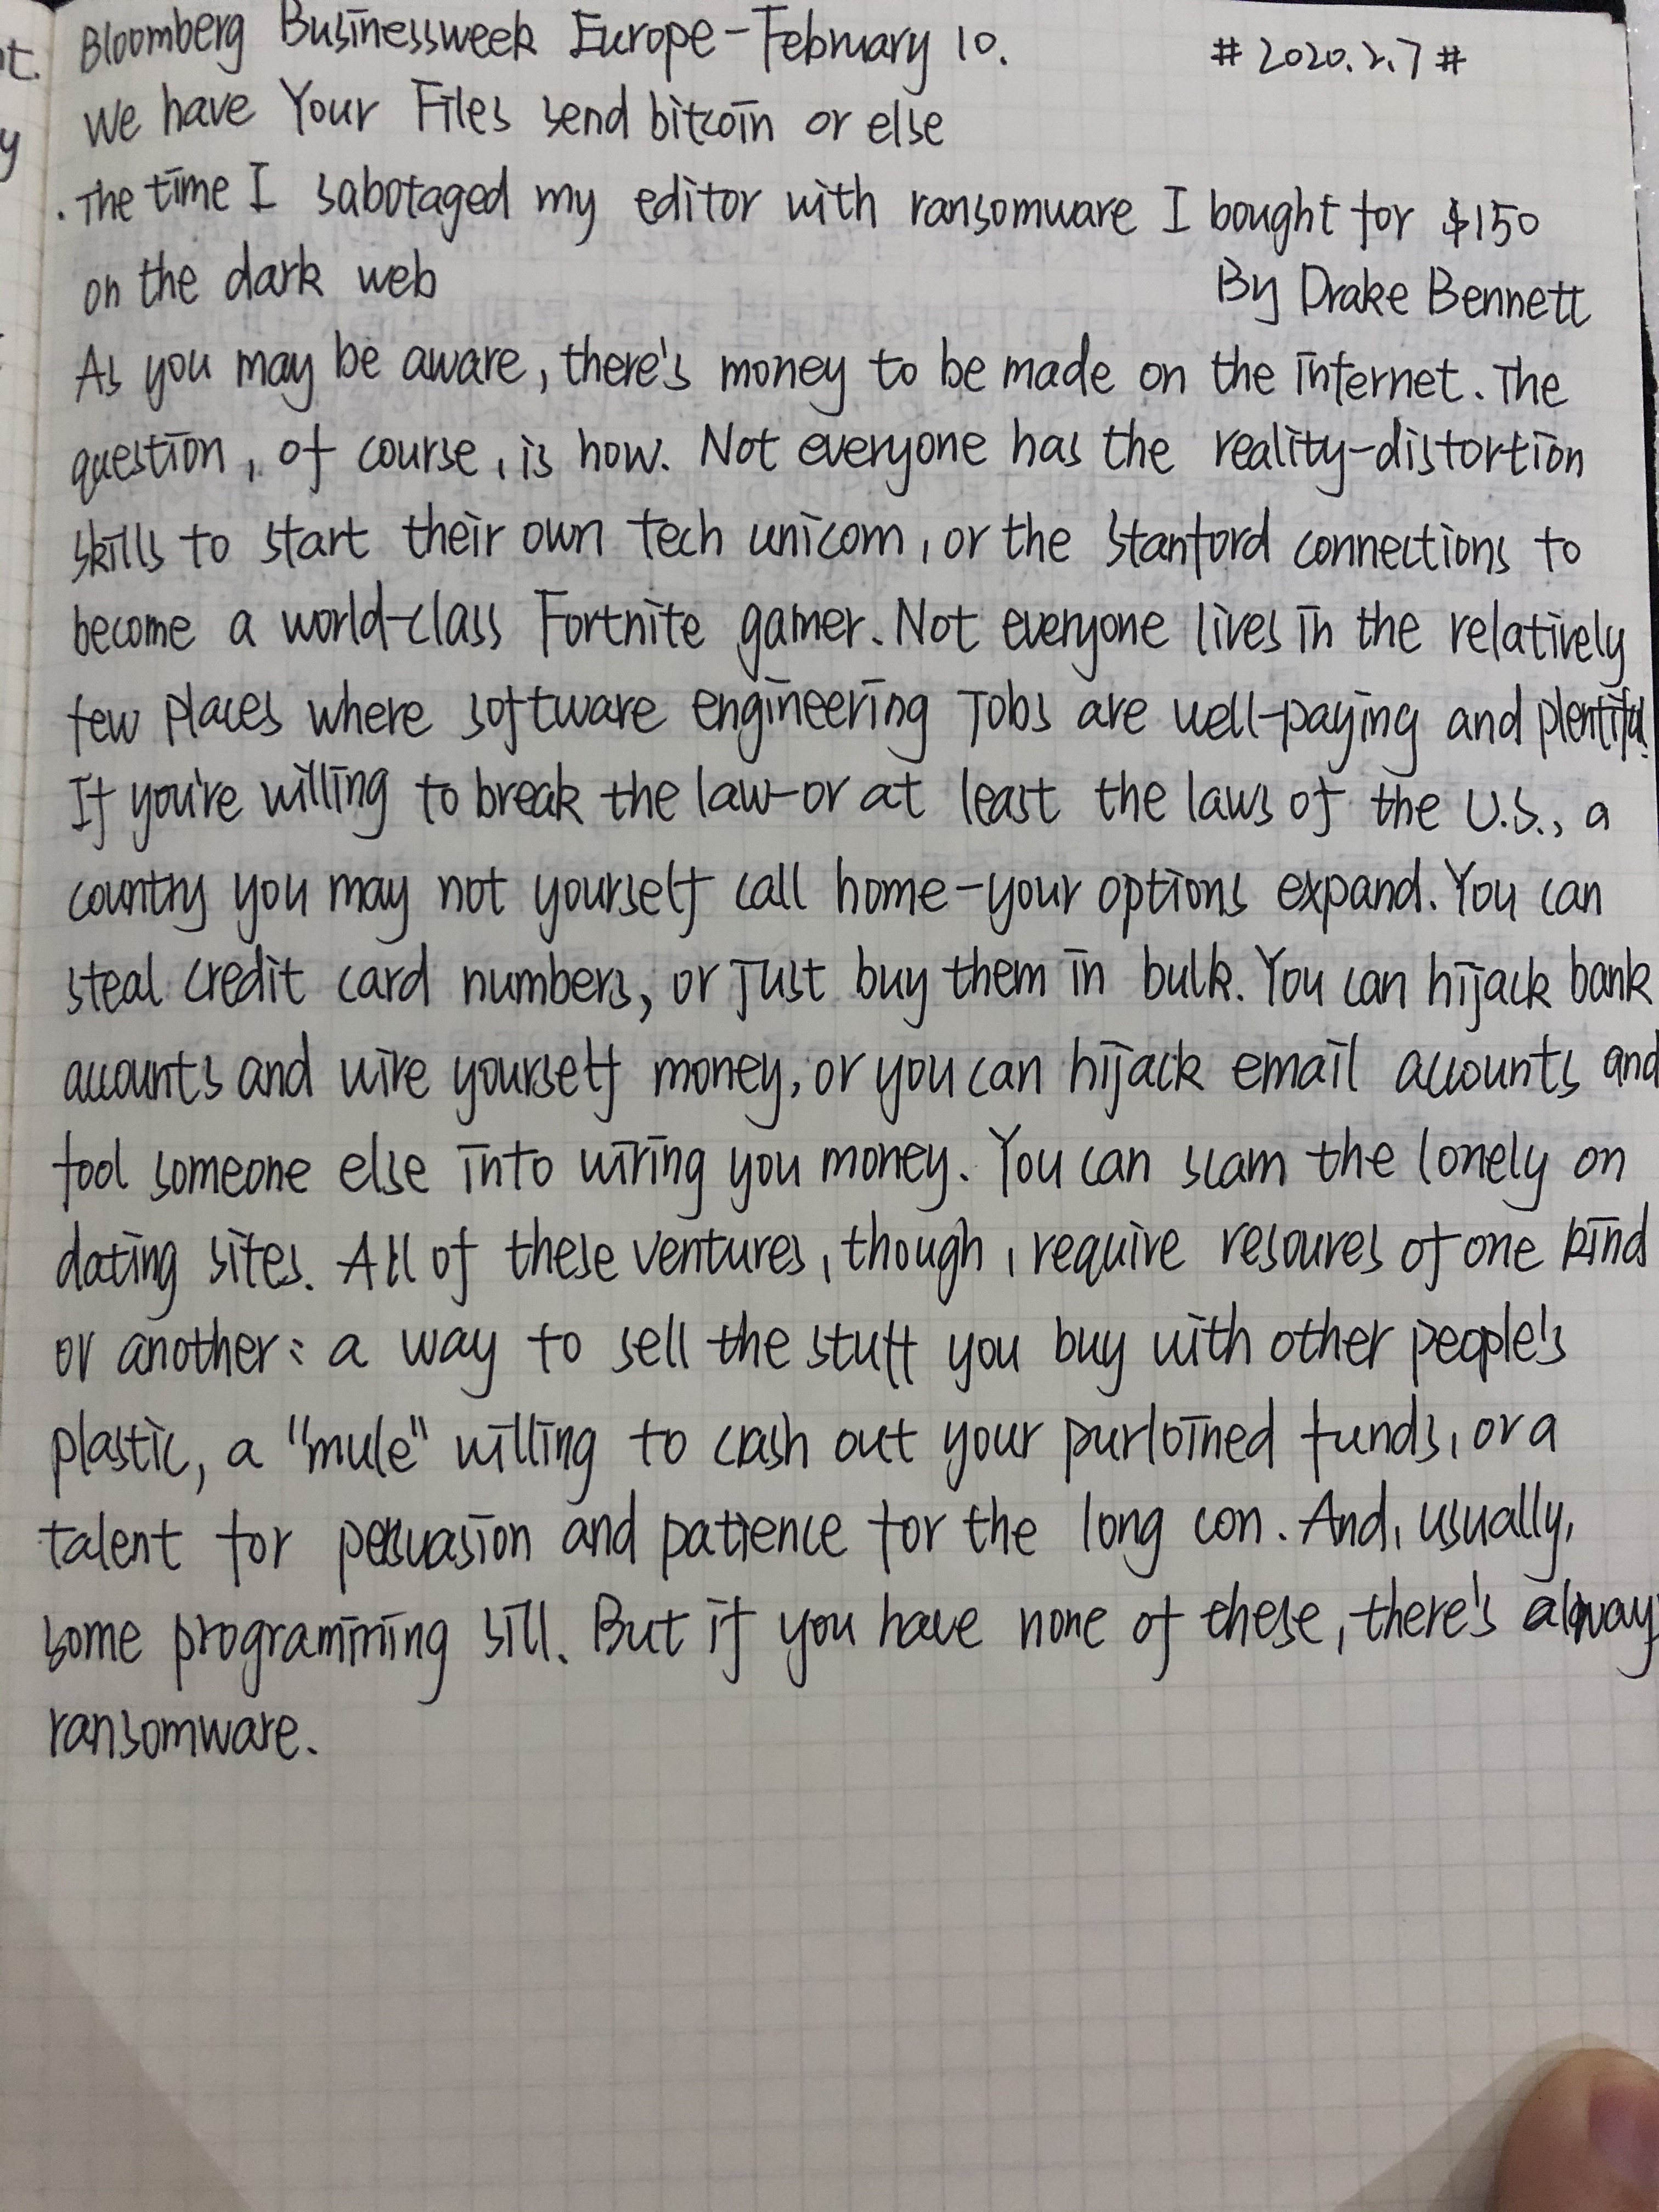 Bloomberg Businessweek Europe-February 10. #2020.2.7#
We have Your Files send bitcoin or else
.The time I sabotaged my editor with ransomware I bought for $150
on the dark web By Drake Bennett
As you may be aware, there's money to be made on the internet. The
question, of course, is how. Not everyone has the reality-distortion
skills to start their own tech unicom, or the Stanford connections to
become a world-class Fortnite gamer. Not everyone lives in the relatively
few places where software engineering Jobs are well-paying and plentiful.
If you're willing to break the law-or at least the laws of the U.S., a
country you may not yourself call home-your options expand. You can
steal credit card numbers, or just buy them in bulk. You can hijack bank
accounts and wire yourself money, or you can hijack email accounts and
fool someone else into wiring you money. You can scam the lonely on
dating sites. All of these ventures, though, require resoures of one kind
or another: a way to sell the stuff you buy with other people's
plastic, a "mule" willing to cash out your purloined funds, or a
talent for persuasion and patience for the long con. And, usually,
some programming sill. But if you have none of these, there's alway
ransomware.